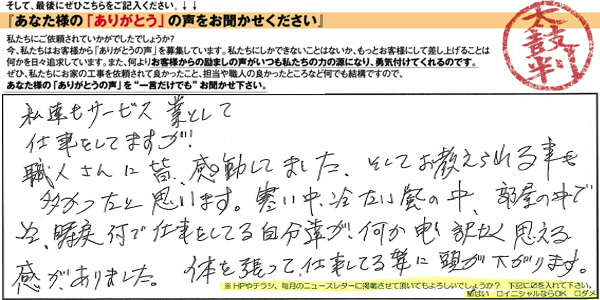 そして、最後にぜひこちらをご記入ください。↓↓
『あなた様の「ありがとう」の声をお聞かせください』
太鼓判
私たちにご依頼されていかがでしたでしょうか?
今、私たちはお客様から「ありがとうの声」を募集しています。私たちにしかできないことはないか、もっとお客様にして差し上げることは
何かを日々追求しています。また、何よりお客様からの励ましの声がいつも私たちの力の源になり、勇気付けてくれるのです。
ぜひ、私たちにお家の工事を依頼されて良かったこと、担当や職人の良かったところなど何でも結構ですので、
あなた様の「ありがとうの声」を“一言だけでも”お聞かせ下さい。
私達もサービス業として
仕事をしてますが!
職人さんに皆、感動してました、そしてお教えられる事も
多かったと思います。寒い中、冷たい風の中、部屋の中で
何で仕事をしてる自分達が、何か申し訳なく思える
感がありました。体を張って、仕事してる姿に頭が下がります。
※HPやチラシ、毎月のニュースレターに掲載させて頂いてもよろしいでしょうか? 下記に☑を入れて下さい。
はい □イニシャルならOK □ダメ